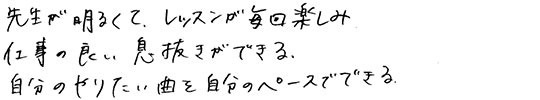 先生が明るくて、レッスンが毎回楽しみ
仕事の良い息抜きができる。
自分のやりたい曲を自分のペースでできる。